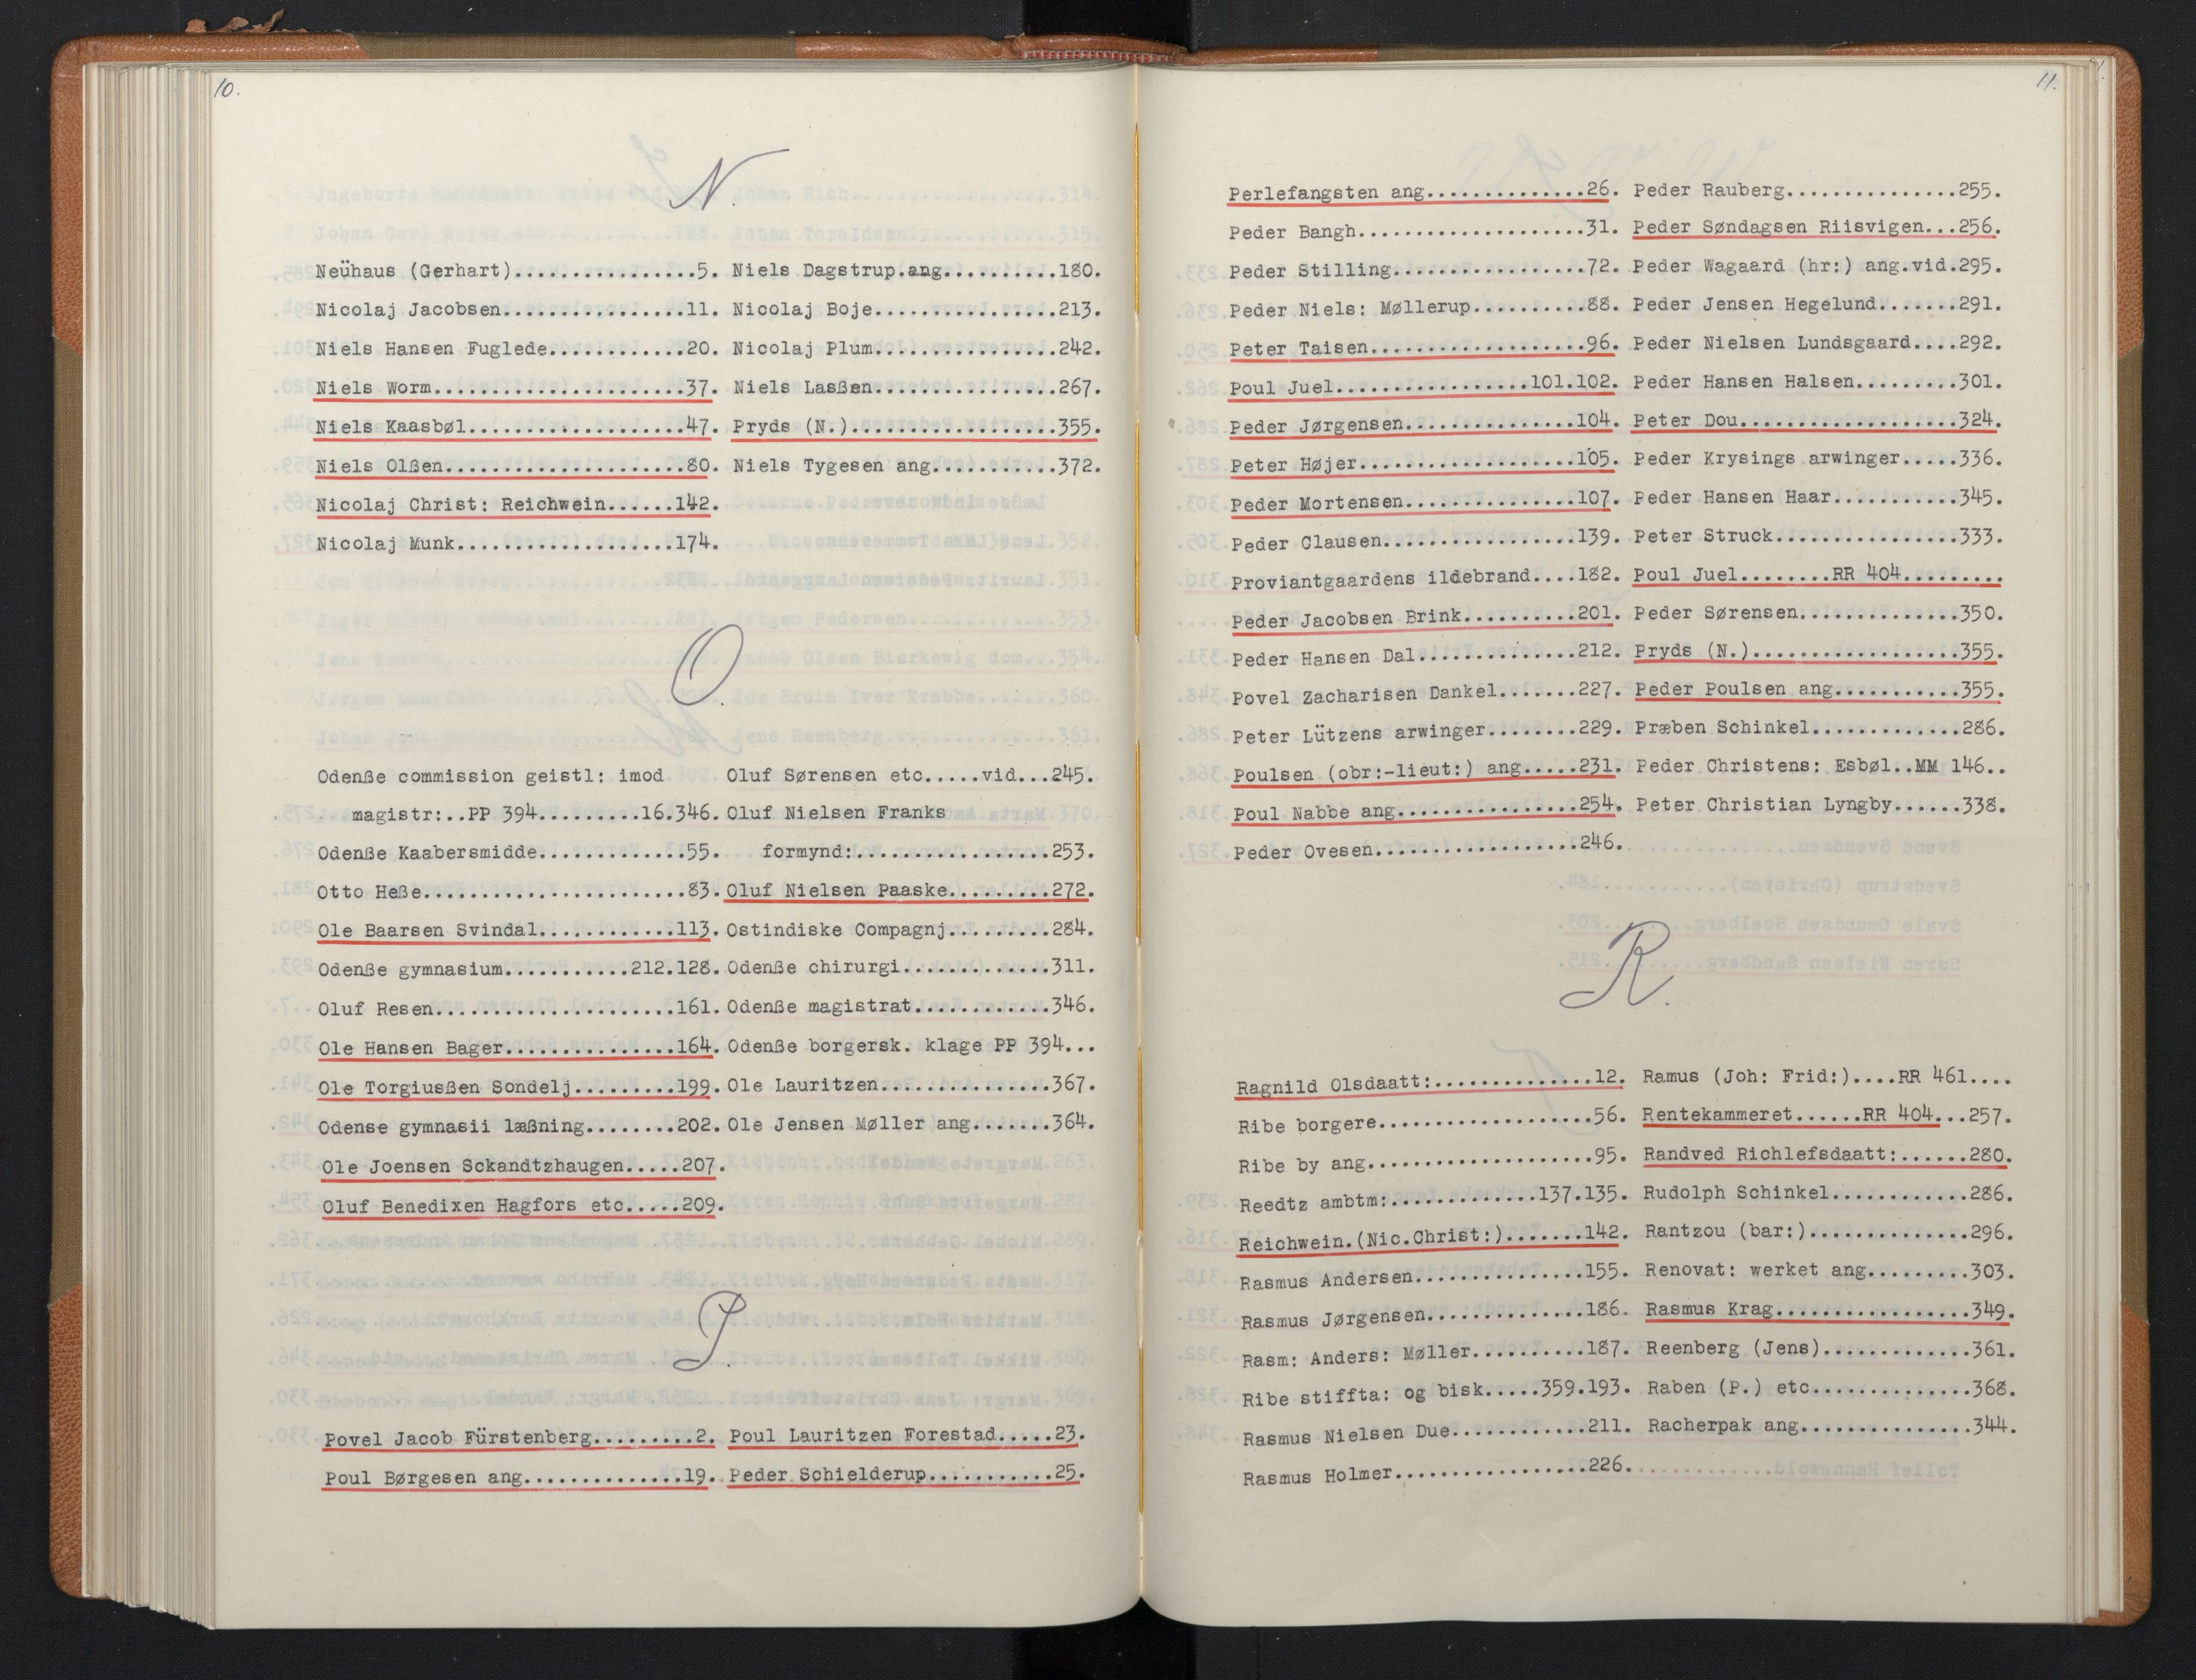 10.
N.
Neühaus (Gerhart)................5.
Nicolaj Jacobsen................11.
Niels Hansen Fuglede............20.
Niels Worm......................37.
Niels Kaasbøl...................47.
Niels Olßen.....................80.
Nicolaj Christ: Reichwein......142.
Nicolaj Munk...................174.
Niels Dagstrup.ang..........180.
Nicolaj Boje................213.
Nicolaj Plum................242.
Niels Lasßen................267.
Pryds (N.)..................355.
Niels Tygesen ang...........372.
O.
Odenße commission geistl: imod
magistr:..PP 394.........16.346.
Odenße Kaabersmidde.............55.
Otto Heße.......................83.
Ole Baarsen Svindal............113.
Odenße gymnasium...........212.128.
Oluf Resen.....................161.
Ole Hansen Bager...............164.
Ole Torgiusßen Sondelj.........199.
Odense gymnasii læßning........202.
Ole Joensen Sckandtzhaugen.....207.
Oluf Benedixen Hagfors etc.....209.
Oluf Sørensen etc.....vid...245.
Oluf Nielsen Franks
formynd:.................253.
Oluf Nielsen Paaske.........272.
Ostindiske Compagnj.........284.
Odenße chirurgi.............311.
Odenße magistrat............346.
Odenße borgersk. klage PP 394...
Ole Lauritzen...............367.
Ole Jensen Møller ang.......364.
P.
Povel Jacob Fürstenberg.........2.
Poul Børgesen ang..............19.
Poul Lauritzen Forestad.....23.
Peder Schielderup...........25.
11.
Perlefangsten ang..............26.
Peder Bangh....................31.
Peder Stilling.................72.
Peder Niels: Møllerup..........88.
Peter Taisen...................96.
Poul Juel.................101.102.
Peder Jørgensen...............104.
Peter Højer...................105.
Peder Mortensen...............107.
Peder Clausen.................139.
Proviantgaardens ildebrand....182.
Peder Jacobsen Brink..........201.
Peder Hansen Dal..............212.
Povel Zacharisen Dankel.......227.
Peter Lützens arwinger........229.
Poulsen (obr:-lieut:) ang.....231.
Poul Nabbe ang................254.
Peder Ovesen..................246.
Peder Rauberg...............255.
Peder Søndagsen Riisvigen...256.
Peder Wagaard (hr:) ang.vid.295.
Peder Jensen Hegelund.......291.
Peder Nielsen Lundsgaard....292.
Peder Hansen Halsen.........301.
Peter Dou...................324.
Peder Krysings arwinger.....336.
Peder Hansen Haar...........345.
Peter Struck................333.
Poul Juel........RR 404.........
Peder Sørensen..............350.
Pryds (N.)..................355.
Peder Poulsen ang...........355.
Præben Schinkel.............286.
Peder Christens: Esbøl..MM 146..
Peter Christian Lyngby......338.
R.
Ragnild Olsdaatt:..............12.
Ribe borgere...................56.
Ribe by ang....................95.
Reedtz ambtm:.............137.135.
Reichwein.(Nic.Christ:).......142.
Rasmus Andersen...............155.
Rasmus Jørgensen..............186.
Rasm: Anders: Møller..........187.
Ribe stiffta: og bisk.....359.193.
Rasmus Nielsen Due............211.
Rasmus Holmer.................226.
Ramus (Joh: Frid:)....RR 461....
Rentekammeret......RR 404...257.
Randved Richlefsdaatt:......280.
Rudolph Schinkel............286.
Rantzou (bar:)..............296.
Renovat: werket ang.........303.
Rasmus Krag.................349.
Reenberg (Jens).............361.
Raben (P.) etc..............368.
Racherpak ang...............344.